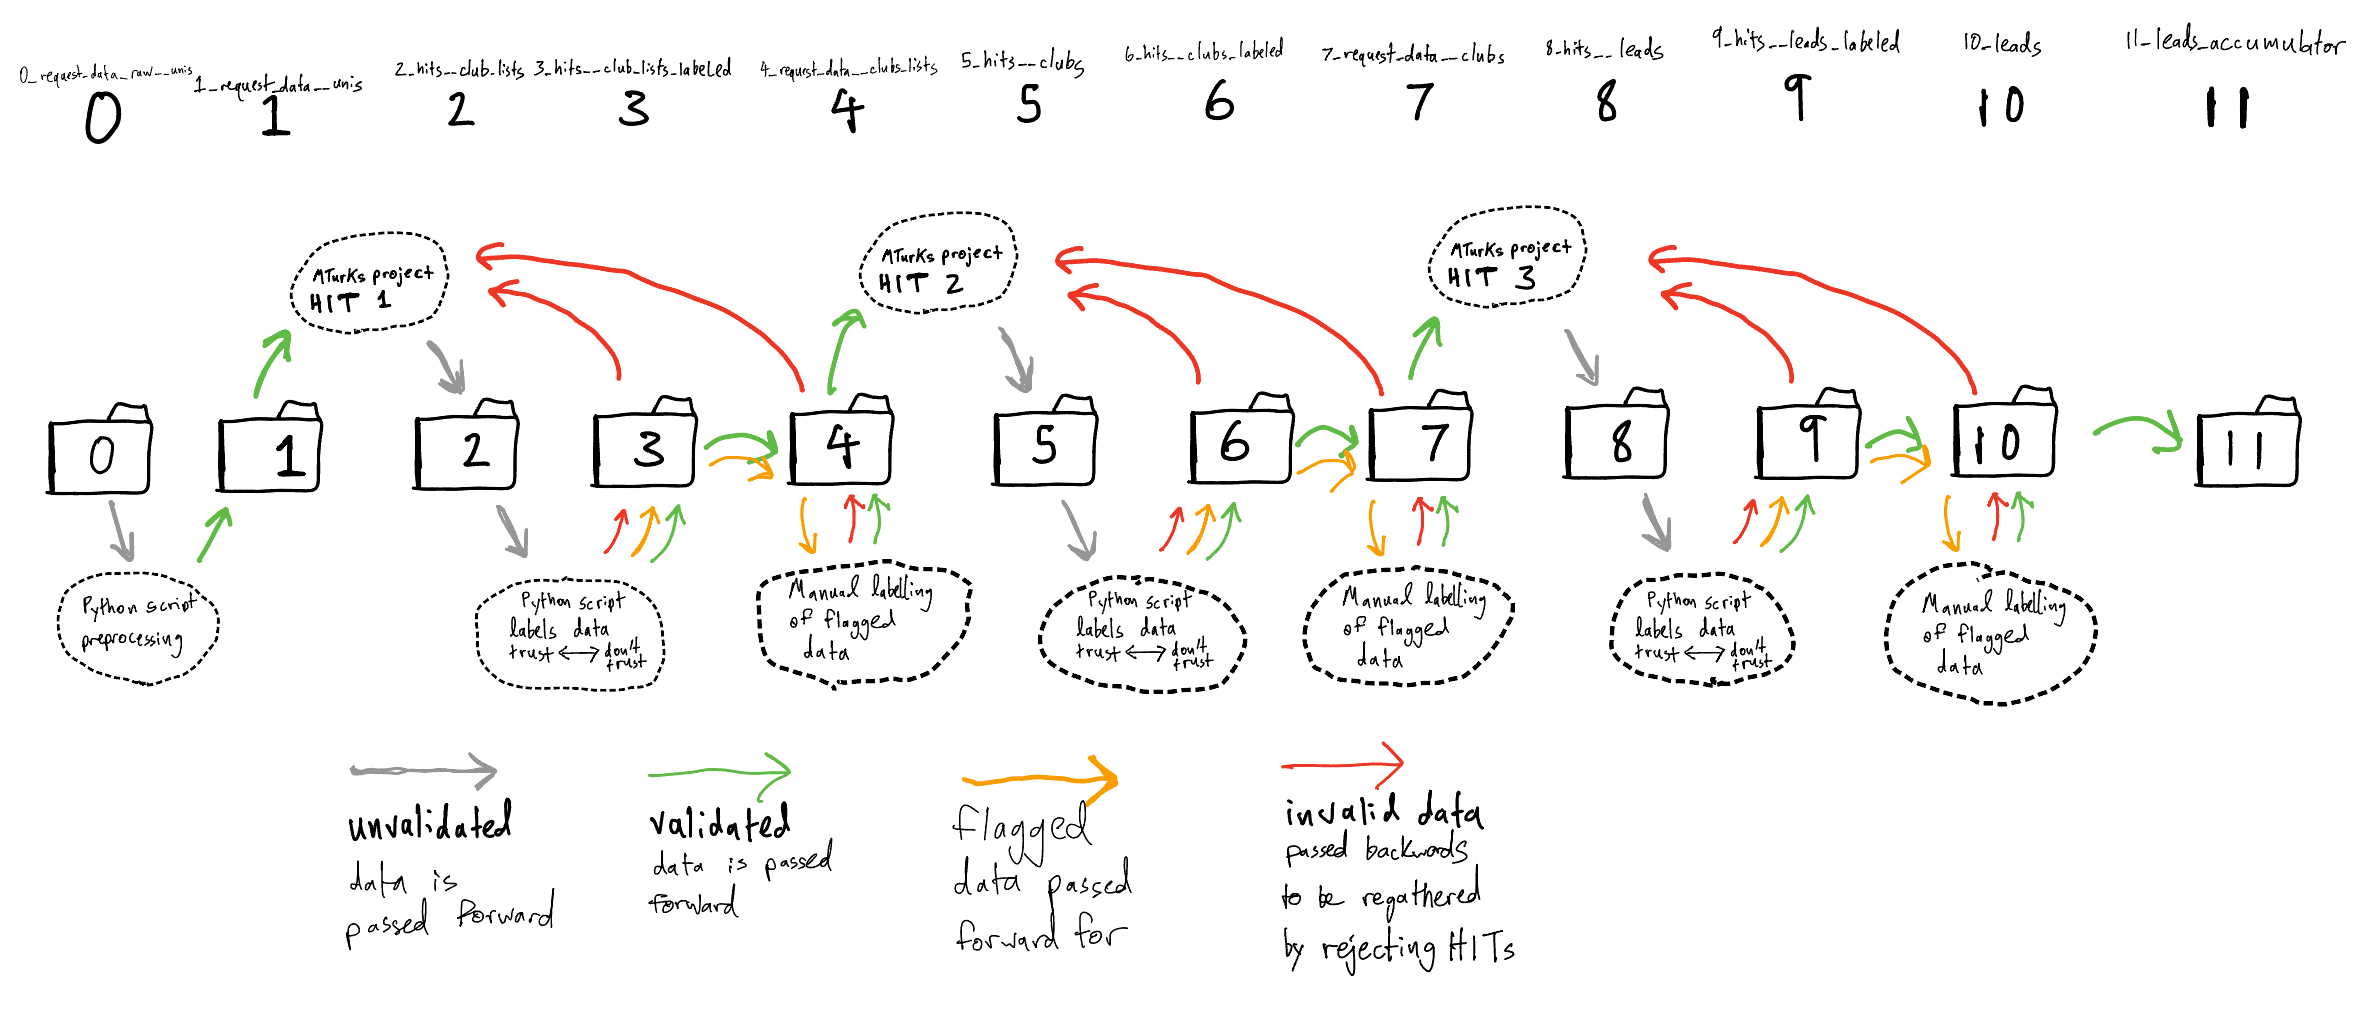 0_request_data_raw__unis
1_request_data__unis
2_hits__club_lists
3_hits__club_lists_labeled
4_request_data__clubs_lists
5_hits__clubs
6_hits__clubs_labeled
7_request_data__clubs
8_hits__leads
9_hits__leads_labeled
10_leads
11_leads_accumulator
0
1
2
3
4
5
6
7
8
9
10
11
MTurks project
HIT 1
MTurks project
HIT 2
MTurks project
HIT 3
0
1
2
3
4
5
6
7
8
9
10
11
Python script
preprocessing
Python script
labels data
trust ⟷ don't
trust
Manual labelling
of flagged
data
Python script
labels data
trust ⟷ don't
trust
Manual labelling
of flagged
data
Python script
labels data
trust ⟷ don't
trust
Manual labelling
of flagged
data
unvalidated
data is
passed forward
validated
data is passed
forward
flagged
data passed
forward for
invalid data
passed backwards
to be regathered
by rejecting HITs